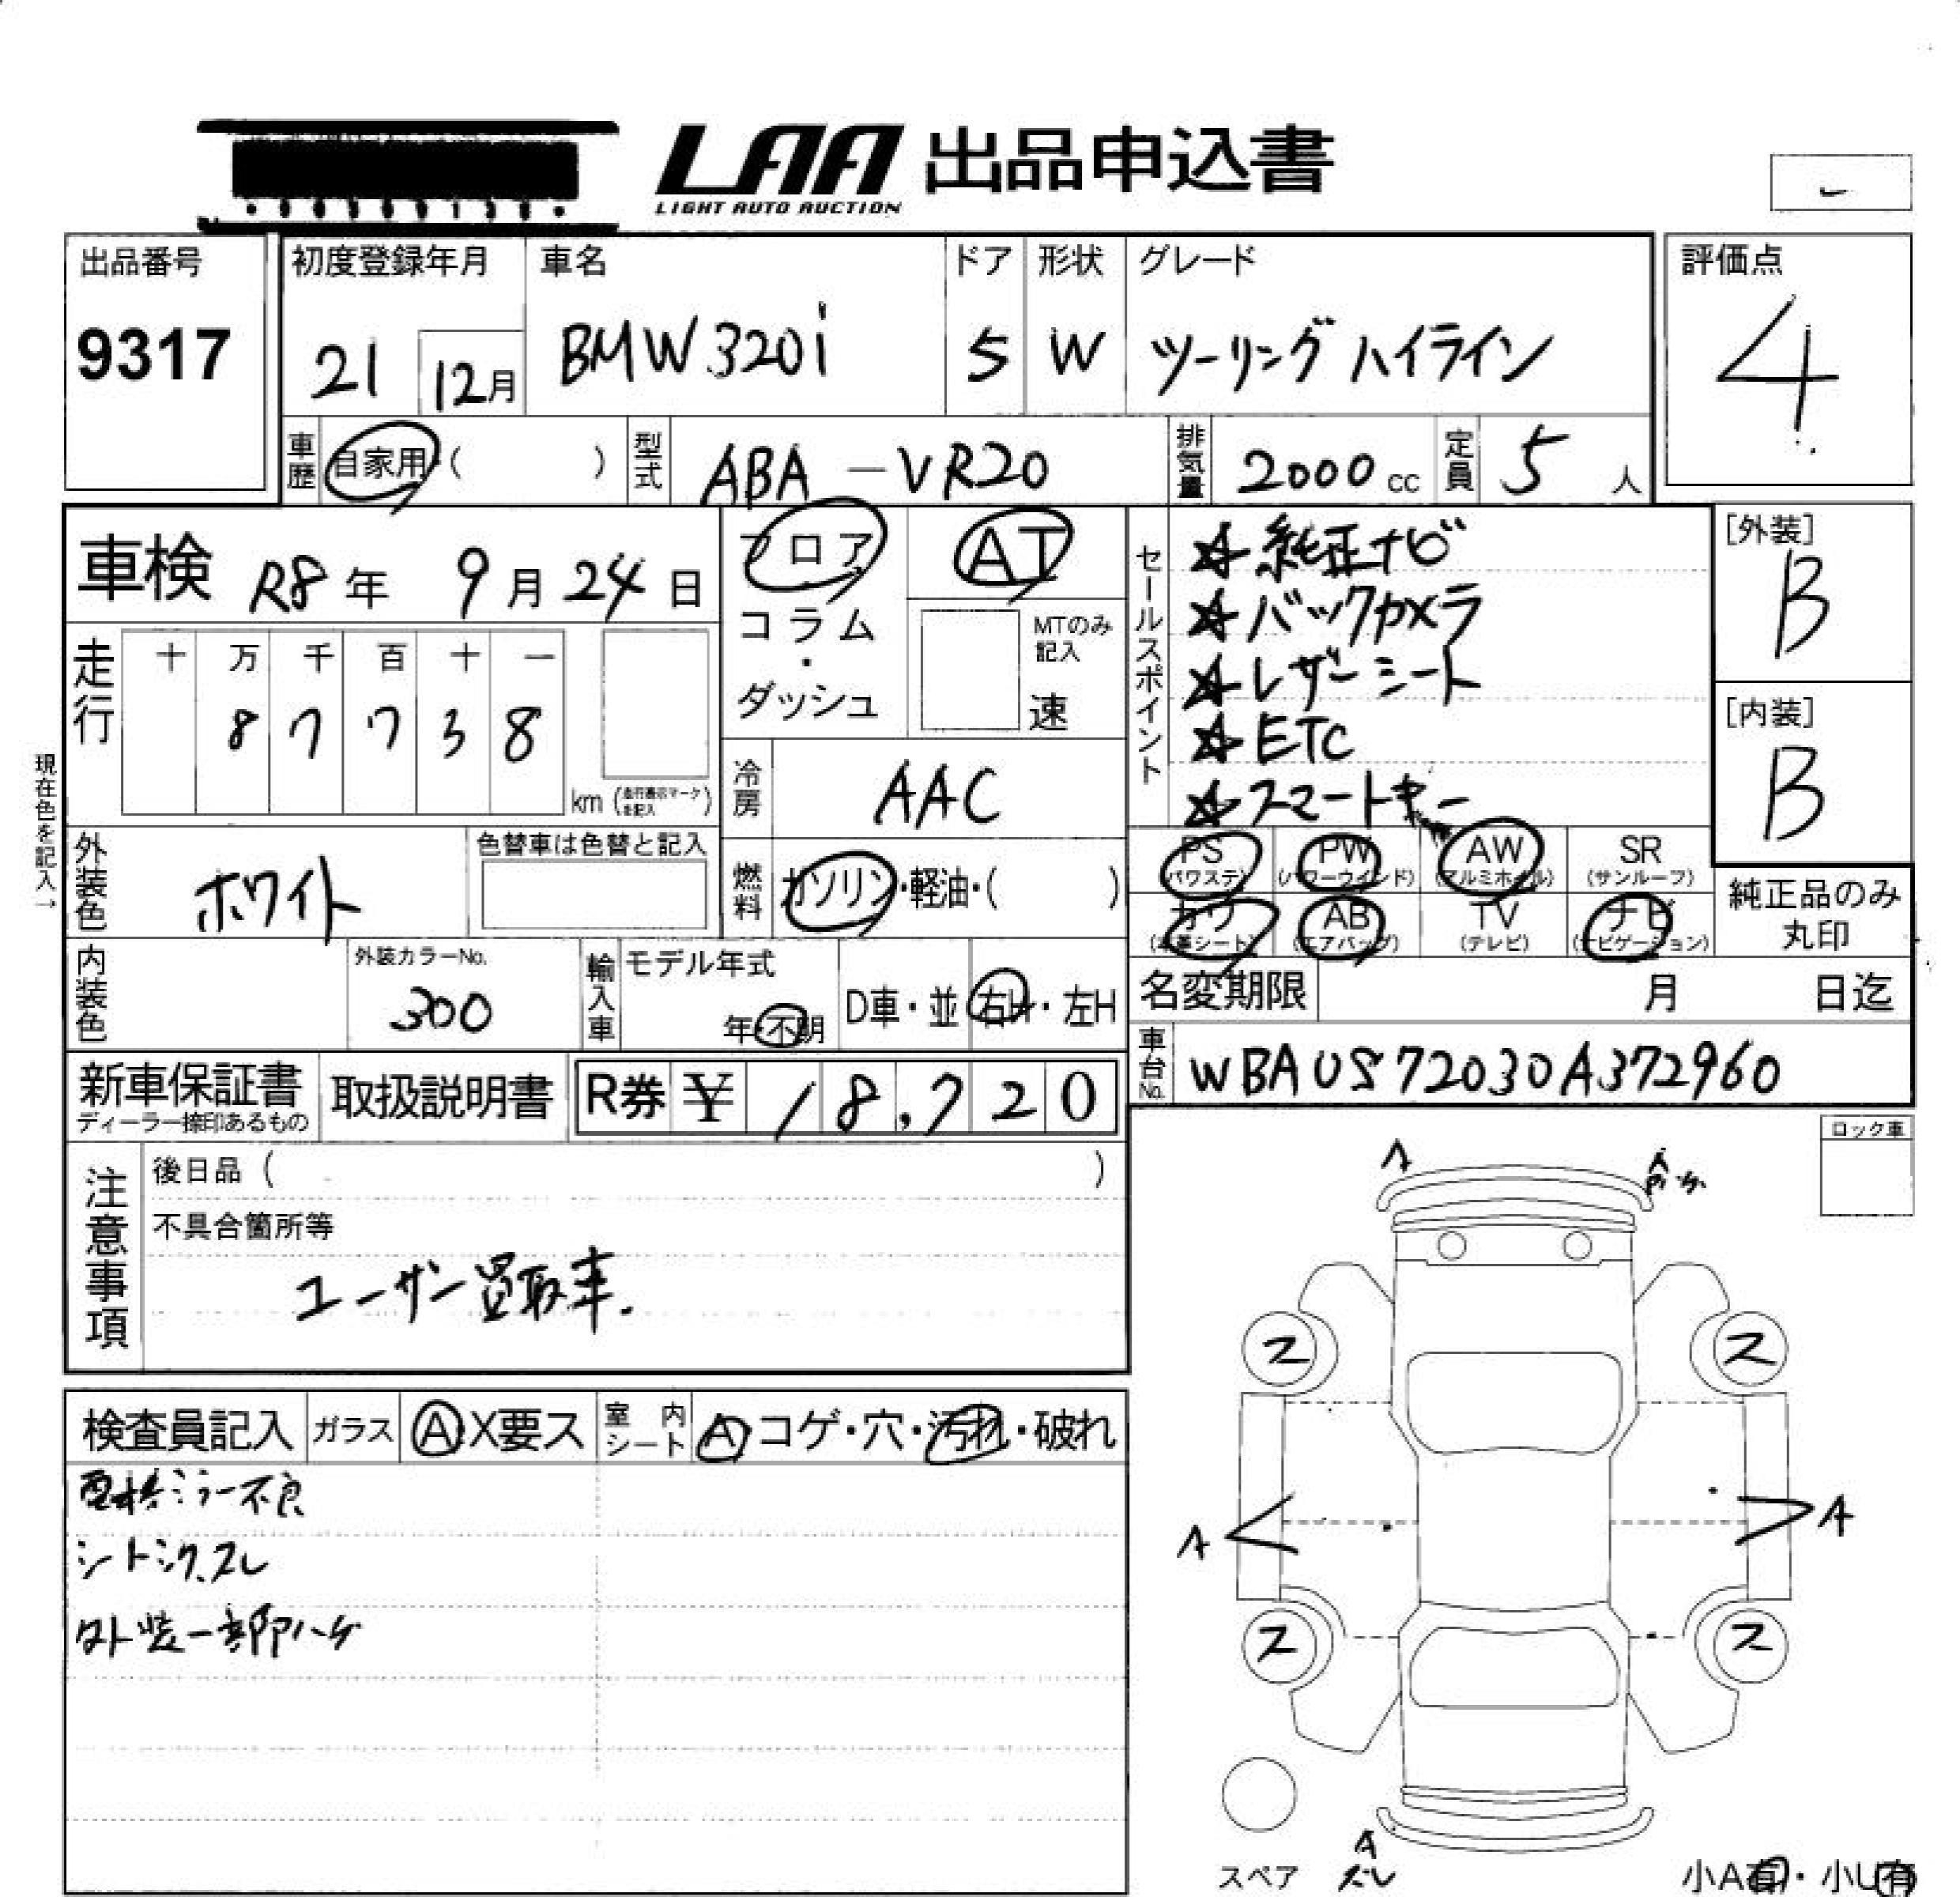 LAA 出品申込書
LIGHT AUTO AUCTION
出品番号 初度登録年月 車名 ドア 形状 グレード 評価点
9317 21 12月 BMW 320i 5 W ツーリング ハイライン 4
車歴 自家用・( ) 型式 ABA-VR20 排気量 2000 cc 定員 5 人
車検 R8年 9月 24日
フロア
コラム
・
ダッシュ
AT
MTのみ記入
速
セールスポイント
☆純正ナビ
☆バックカメラ
☆レザーシート
☆ETC
☆スマートキー
[外装]
B
[内装]
B
走行 十 万 千 百 十 一
8 7 7 3 8
km (走行表示マークを記入)
現在色を記入→
冷房 AAC
外装色 ホワイト
色替車は色替と記入
燃料 ガソリン・軽油・( )
PS (パワステ) PW (パワーウインド) AW (アルミホイル) SR (サンルーフ)
カワ (本革シート) AB (エアバッグ) TV (テレビ) ナビ (ナビゲーション)
純正品のみ
丸印
内装色
外装カラーNo.
300
輸入車 モデル年式
年・不明 D車・並 右H・左H
名変期限 月 日迄
車台No. WBAUS72030A372960
新車保証書
ディーラー捺印あるもの
取扱説明書
R券 ¥ 18,720
ロック車
注意事項
後日品 ( )
不具合箇所等
ユーザー買取車.
A
A
ス ス
検査員記入 ガラス A・X要ス 室内シート A・コゲ・穴・汚れ・破れ
電格ミラー不良
シートシワ、スレ
外装一部ハゲ
A A
ス ス
スペア
A
スレ
小A有・小U有